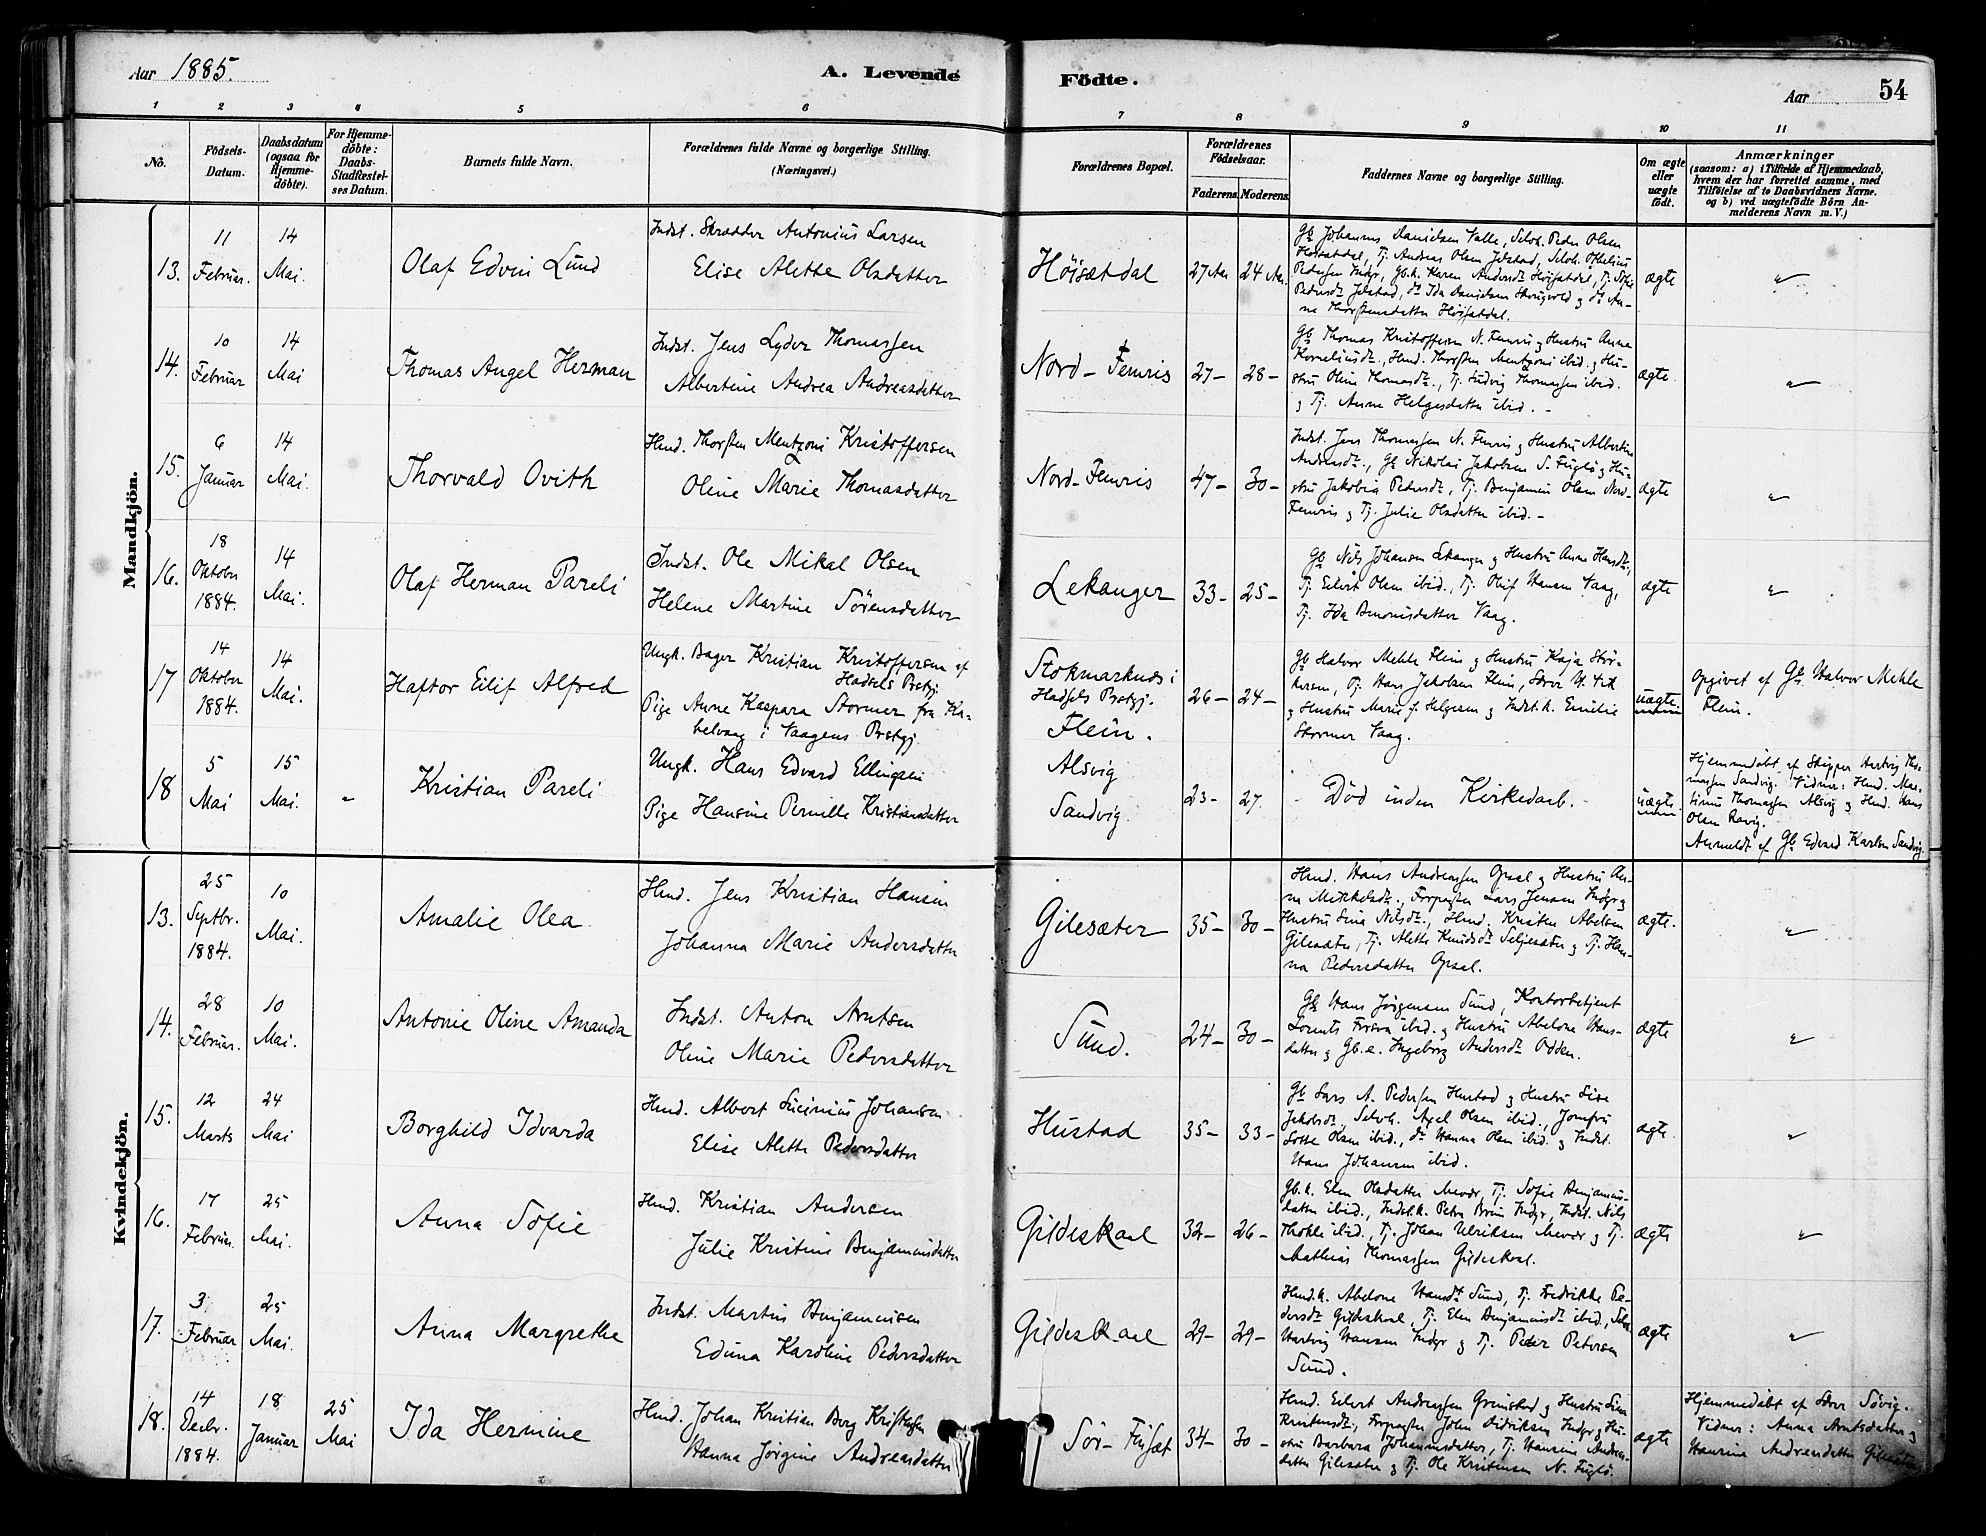 Aar 1885.
A. Levende Födte.
Aar 54
1 2 3 4 5 6 7 8 9 10 11
No.
Födsels-Datum.
Daabsdatum (ogsaa for Hjemme-döbte).
For Hjemme-döbte: Daabs-Stadfæstel-ses Datum.
Barnets fulde Navn.
Forældrenes fulde Navne og borgerlige Stilling. (Næringsvei.)
Forældrenes Bopæl.
Forældrenes Födselsaar.
Faderens. Moderens.
Faddernes Navne og borgerlige Stilling.
Om ægte eller uægte födt.
Anmærkninger
(saasom: a) i Tilfælde af Hjemmedaab,
hvem der har forrettet samme, med
Tilföielse af to Daabsvidners Navne.
og b) ved uægtefödte Börn An-
melderens Navn m. V.)
Mandkjön.
13. 11 Februar. 14 Mai.
Olaf Edvin Lund
Indst. Skrædder Antonius Larsen
Elise Alette Olsdatter
Höisætdal
27 Aar 24 Aar.
Gb. Johannes Danielsen Valle, Selvb. Peder Olsen
ægte
"
14. 10 Februar 14 Mai
Thomas Angel Herman
Indst. Jens Lyder Thomassen
Albertine Andrea Andreasdatter
Nord-Femris
27- 28-
Gb. Thomas Kristoffersen N. Femris & Hustru Anne
Korneliusdr., Hmd. Thorsten Mentzoni ibid. & Hu-
stru Oline Thomasdr., Tj. Ludvig Thomassen ibid.
& Tj. Anne Helgesdatter ibid. -
ægte.
"
15. 6 Januar 14 Mai.
Thorvald Ovith
Hmd. Thorsten Mentzoni Kristoffersen
Oline Marie Thomasdatter
Nord-Femris
47- 30-
Indst. Jens Thomassen N. Femris & Hustru Albertine
Andreasdr., Gb. Nikolai Jakobsen S. Fuglö & Hu-
stru Jakobia Pedersdr., Tj. Benjamin Olsen Nord-
Femris & Tj. Julie Olsdatter ibid. -
ægte
"
16. 18 Oktober 1884. 14 Mai.
Olaf Herman Pareli
Indst. Ole Mikal Olsen
Helene Martine Sörensdatter
Lekanger
33- 25-
Gb. Nils Johansen Lekanger & Hustru Anne Hansdr.,
Tj. Edvert Olsen ibid., Tj. Oluf Hansen Vaag,
Tj. Ida Benoniisdatter Vaag.
ægte
"
17 14 Oktober 1884. 14 Mai.
Haftor Eilif Alfred
Ungk. Bager Kristian Kristoffersen af
Hadsels Prstgj.
Pige Anne Kaspara Stormer fra Ka-
belvaag i Vaagens Prstgj.
Stokmarknæs i
Hadsels Prstgj.
Flein.
26- 24-
Gb. Halvor Mehle Flein & Hustru Kaja Stor-
Tj. Hans Jakobsen Flein,
& Hustru Marie f. Helgesen & Indst.k. Emilie
Stormer Vaag.
uægte.
Opgivet af Gb. Halvor Mehle
Flein.
18 5 Mai 15 Mai. "
Kristian Pareli
Ungk. Hans Edvard Ellingsen
Pige Hansine Pernille Kristiansdatter
Alsvig
Sandvig.
23- 27.
- Död inden Kirkedaab. -
uægte
Hjemmedöbt af Skipper Hartvig Tho-
massen Sandvig. Vidner: Hmd. Mar-
tinus Thomassen Alsvig & Hmd. Hans
Olsen
Anmeldt af Gb. Edvard Karlsen Sandvig.
Kvindekjön.
13. 25 Septbr. 1884. 10 Mai.
Amalie Olea
Hmd. Jens Kristian Hansen
Johanna Marie Andersdatter
Gilesæter
35- 30-
Hmd. Hans Andreassen Opsal & Hustru An-
na Mekkelsdr., Forpagter Lars Jensen Indyr &
Hustru Lina Nilsdr., Hmd. Kristen Abelsen
Gilesæter, Tj. Alette Knudsdr. Seljesæter & Tj. Han-
na Pedersdatter Opsal.
ægte.
"
14. 28 Februar. 10 Mai.
Antonie Oline Amanda
Indst. Anton Arntsen
Oline Marie Pedersdatter
Sund.
24- 30-
Gb. Hans Jörgensen Sund, Kontorbetjent
Lorents ibid. & Hustru Abelone Hans-
datter & Gb.e. Ingeborg Andersdr. Odden.
ægte
"
15. 12 Marts 24 Mai
Borghild Idvarda
Hmd. Albert Johansen
Elise Alette Pedersdatter
Hustad
35- 33-
Gb. Lars A. Pedersen Hustad & Hustru Sive
Jakobsdr., Selvb. Axel Olsen ibid., Jomfru
Lotte Olsen ibid., do Hanna Olsen ibid. & Indst.
Hans Johansen ibid.
ægte.
"
16. 17 Februar. 25 Mai.
Anna Sofie
Hmd. Kristian Andersen
Julie Kristine Benjaminsdatter
Gildeskaal
32- 26-
Gb.k. Elen Olsdatter Mevær, Tj. Sofie Benjamins-
datter ibid., Indst.k. Petra Bruun Indyr, Indst. Nils
ibid., Tj. Johan Ulriksen Mevær & Tj.
Mathias Thomassen Gildeskaal.
ægte
"
17. 3 Februar 25 Mai.
Anna Margrethe
Indst. Martin Benjaminsen
Edina Karoline Pedersdatter
Gildeskaal
29- 29-
Hmd.k. Abelone Hansdr. Sund, Tj. Fredrikke Pe-
dersdr. Gildeskaal, Tj. Elen Benjaminsdr. ibid., Selvb.
Hartvig Hansen Indyr & Tj. Peder Petersen
Sund.
ægte
"
18. 14 Decbr. 1884. 18 Januar 25 Mai
Ida Hermine
Hmd. Johan Kristian Berg Kristensen
Hanna Jörgine Andreasdatter
Sör-Finsæt
34- 30-
Hmd. Edvert Andreassen Grimstad & Hustru Lina
Forpagter John Didriksen Indyr & Hu-
stru Barbara Johannesdatter, Tj. Hansine Andreas-
datter Gilesæter & Tj. Ole Kristensen N. Fuglö.
ægte
Hjemmedöbt af Sövig.
Vidner: Anna Arntsdatter &
Hansine Andreasdatter Gilesæter